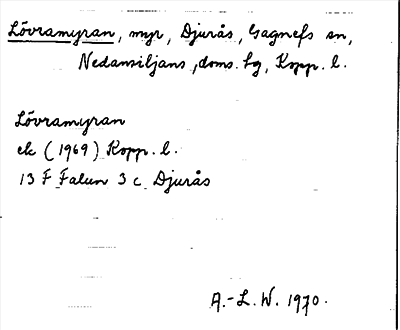 Lövramyran, myr, Djurås, Gagnefs sn,
Nedansiljans, doms. hg, Kopp. l.
Lövramyran
ek (1969) Kopp. l.
13 F Falun 3 c Djurås
A.-L. W. 1970.